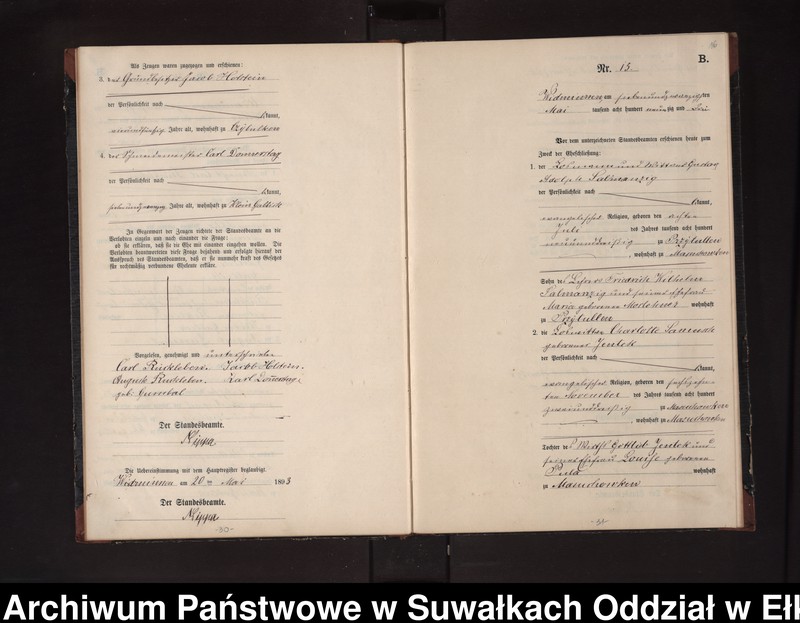 Als Zeugen waren zugezogen und erschienen:
3. der Grundbesitzer Jacob Holstein
der Persönlichkeit nach
kannt,
Jahre alt, wohnhaft zu Czybulken
4. der Schneidermeister Carl Donnerstag
der Persönlichkeit nach
kannt,
siebenundzwanzig Jahre alt, wohnhaft zu Klein Gablick
In Gegenwart der Zeugen richtete der Standesbeamte an die
Verlobten einzeln und nach einander die Frage:
ob sie erklären, daß sie die Ehe mit einander eingehen wollen. Die
Verlobten beantworteten diese Frage bejahend und erfolgte hierauf der
Ausspruch des Standesbeamten, daß er sie nunmehr kraft des Gesetzes
für rechtmäßig verbundene Eheleute erkläre.
Vorgelesen, genehmigt und unterschrieben
Carl Jacob
Auguste Karl Donnerstag
geb:
Der Standesbeamte.
Nippa
Die Uebereinstimmung mit dem Hauptregister beglaubigt
Widminnen am 20ten Mai 1893
Der Standesbeamte.
Nippa
-30-
B.
Nr. 15.
Widminnen am siebenundzwanzigsten
Mai tausend acht hundert neunzig und drei
Vor dem unterzeichneten Standesbeamten erschienen heute zum
Zweck der Eheschließung:
1. der und Wittwer
Adolph Salmanzig
der Persönlichkeit nach
kannt,
evangelischer Religion, geboren den achten
Juli des Jahres tausend acht hundert
neununddreißig zu Przytullen
, wohnhaft zu Masuchowken
Sohn des Friedrich Wilhelm
Salmanzig und seiner Ehefrau
Maria geborenen wohnhaft
zu Przytullen
2. die Charlotte
geborene Jentek
der Persönlichkeit nach
kannt,
evangelischer Religion, geboren den sechszehn-
ten November des Jahres tausend acht hundert
zweiunddreißig zu Masuchowken
, wohnhaft zu Masuchowken
Tochter des Wirth Gottlieb Jentek und
seiner Ehefrau Louise geborenen
wohnhaft
zu Masuchowken
-31-
Archiwum Państwowe w Suwałkach Oddział w Ełk